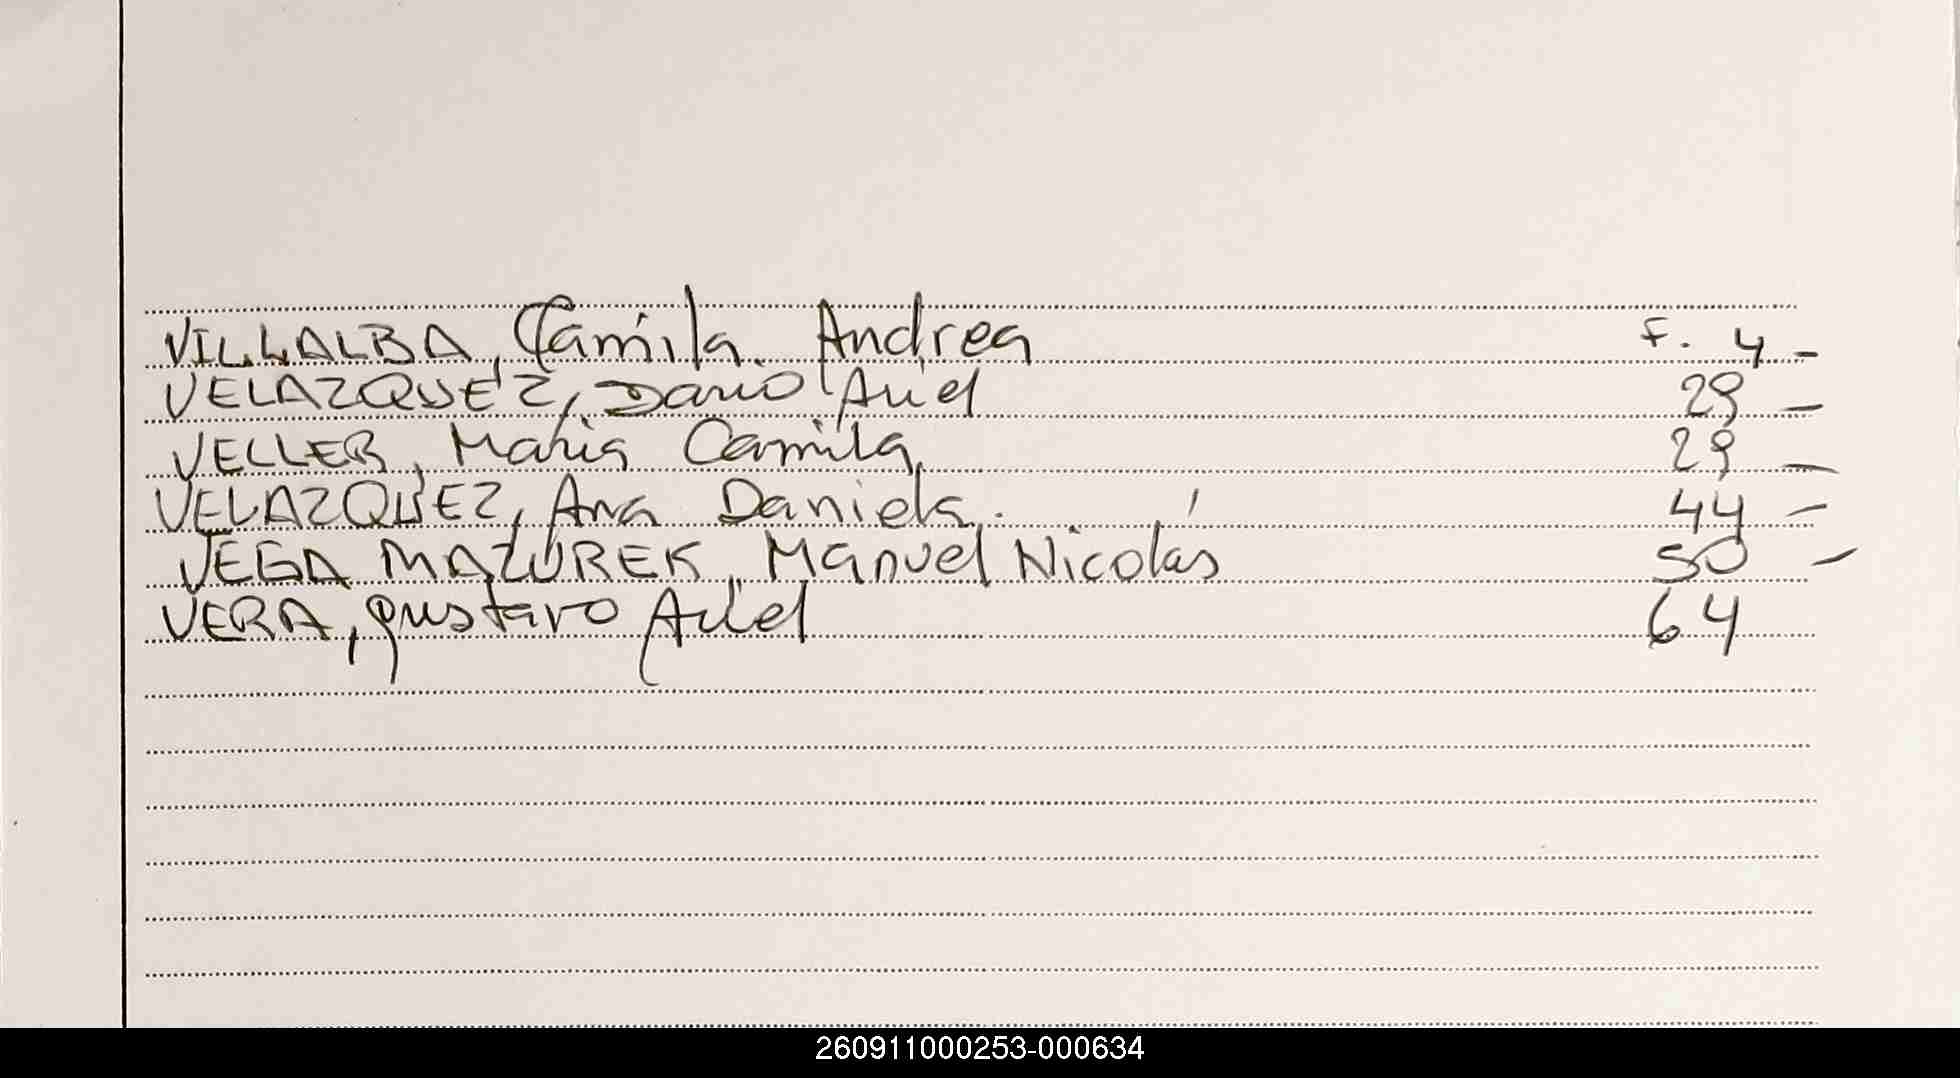 VILLALBA, Camila Andrea F. 4 -
VELAZQUEZ, Dario Ariel 29 -
VELLER, Maria Camila, 29 -
VELAZQUEZ, Ana Daniela. 44 -
VEGA MAZUREK, Manuel Nicolás 50 -
VERA, gustavo Ariel 64
260911000253-000634